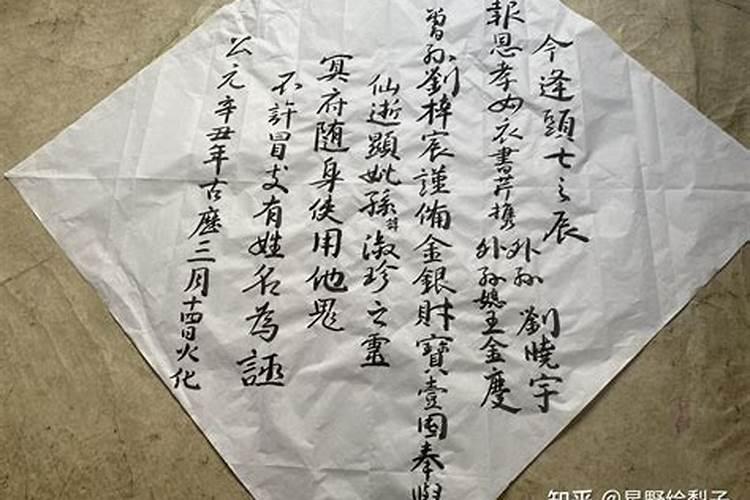 今逢頭七之辰
報恩孝女衣書芹携
外孙 劉曉宇
外孙媳王金
曾孙劉梓宸謹備金銀財寶壹奉與
仙逝顯妣孫淑珍之靈
冥府随身使用他鬼
不許冒支有姓名為
公元辛丑年古歷三月十四日火化
知乎